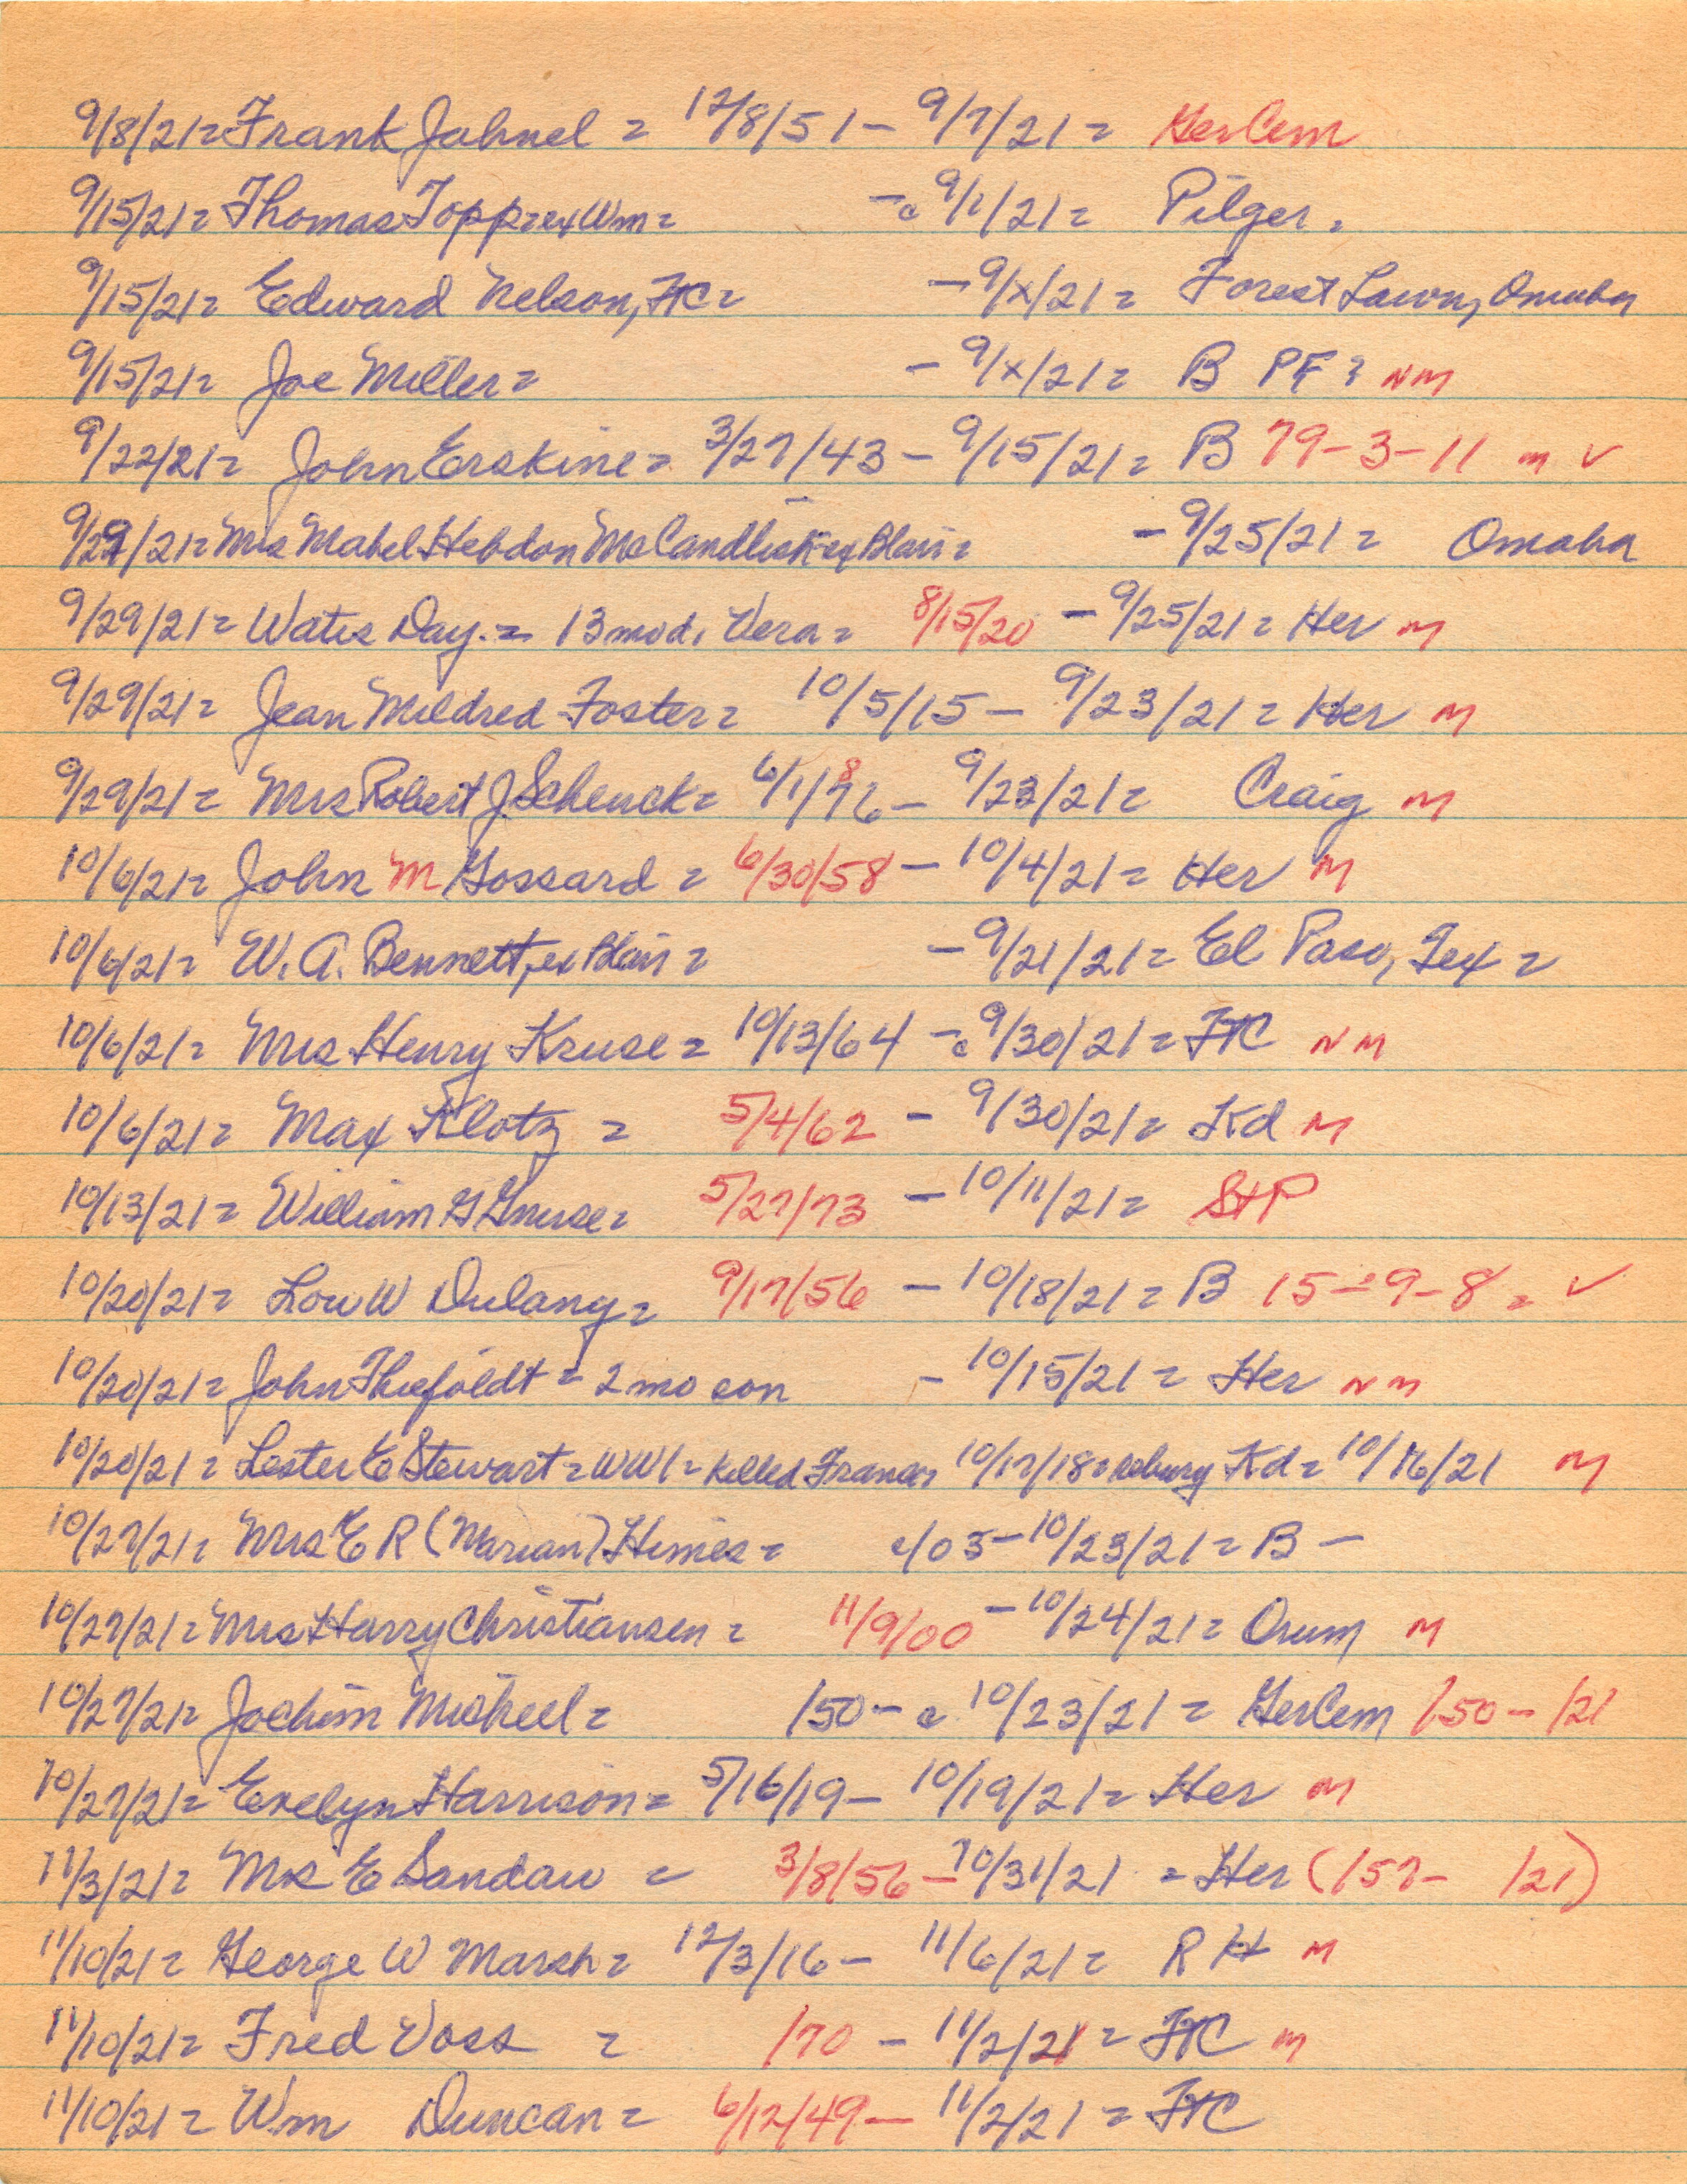 9/8/21= Frank Jahnel = 12/8/51 - 9/7/21= GerCem
9/15/21= Thomas Topp=ex Wm= -c 9/1/21= Pilger.
9/15/21= Edward Nelson, FtC= - 9/x/21= Forest Lawn, Omaha
9/15/21= Joe Miller= - 9/x/21= B PF? NM
9/22/21= John Erskine= 3/27/43 - 9/15/21= B 79-3-11 m ✓
9/29/21= Mrs Mabel Hebdon McCandlish=ex Blair= - 9/25/21= Omaha
9/29/21= Watis Day.= 13 mo d. Vera= 8/15/20 - 9/25/21= Her M
9/29/21= Jean Mildred Foster= 10/5/15 - 9/23/21= Her M
9/29/21= Mrs Robert J. Schenck= 6/1/ - 9/23/21= Craig M
10/6/21= John M Gossard = 6/30/58 - 10/4/21= Her M
10/6/21= W. A. Bennett, ex Blair= - 9/21/21= El Paso, Tex=
10/6/21= Mrs Henry Kruse= 10/13/64 -c 9/30/21= FtC NM
10/6/21= Max Klotz = 5/4/62 - 9/30/21= Kd M
10/13/21= William G Gruse= 5/27/73 - 10/11/21= StP
10/20/21= Lou W Dulany= 9/17/56 - 10/18/21= B 15-9-8= ✓
10/20/21= John = 2 mo son - 10/15/21= Her NM
10/20/21= Lester E Stewart=WW1=Killed France, 10/17/18=rebury Kd= 10/16/21 M
10/27/21= Mrs E R (Marian) Himes= c/03 - 10/23/21= B -
10/27/21= Mrs Harry Christiansen= 11/9/00 - 10/24/21= Orum M
10/27/21= Jochim Miskeel= /50 - c 10/23/21= GerCem /50 - /21
10/27/21= Evelyn Harrison= 5/16/19 - 10/19/21= Her M
11/3/21= Mrs E Sandau = 3/8/56 - 10/31/21 = Her (/57- /21)
11/10/21= George W Marsh= 12/3/16 - 11/6/21= R H M
11/10/21= Fred Voss = /70 - 11/2/21= FtC M
11/10/21= Wm Duncan= 6/12/49 - 11/2/21= FtC